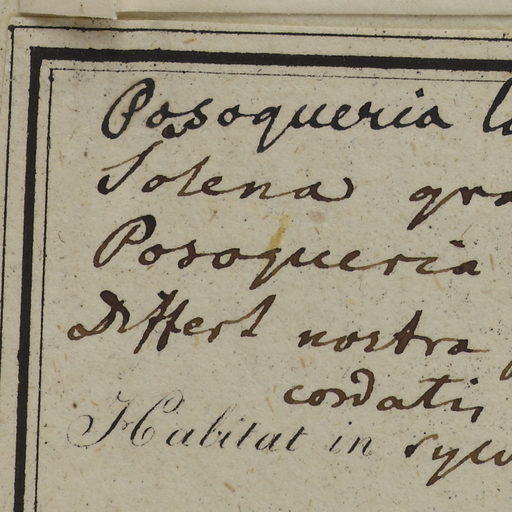 Posoqueria
Solena
Posoqueria
Differt nostra
cordatis
Habitat in